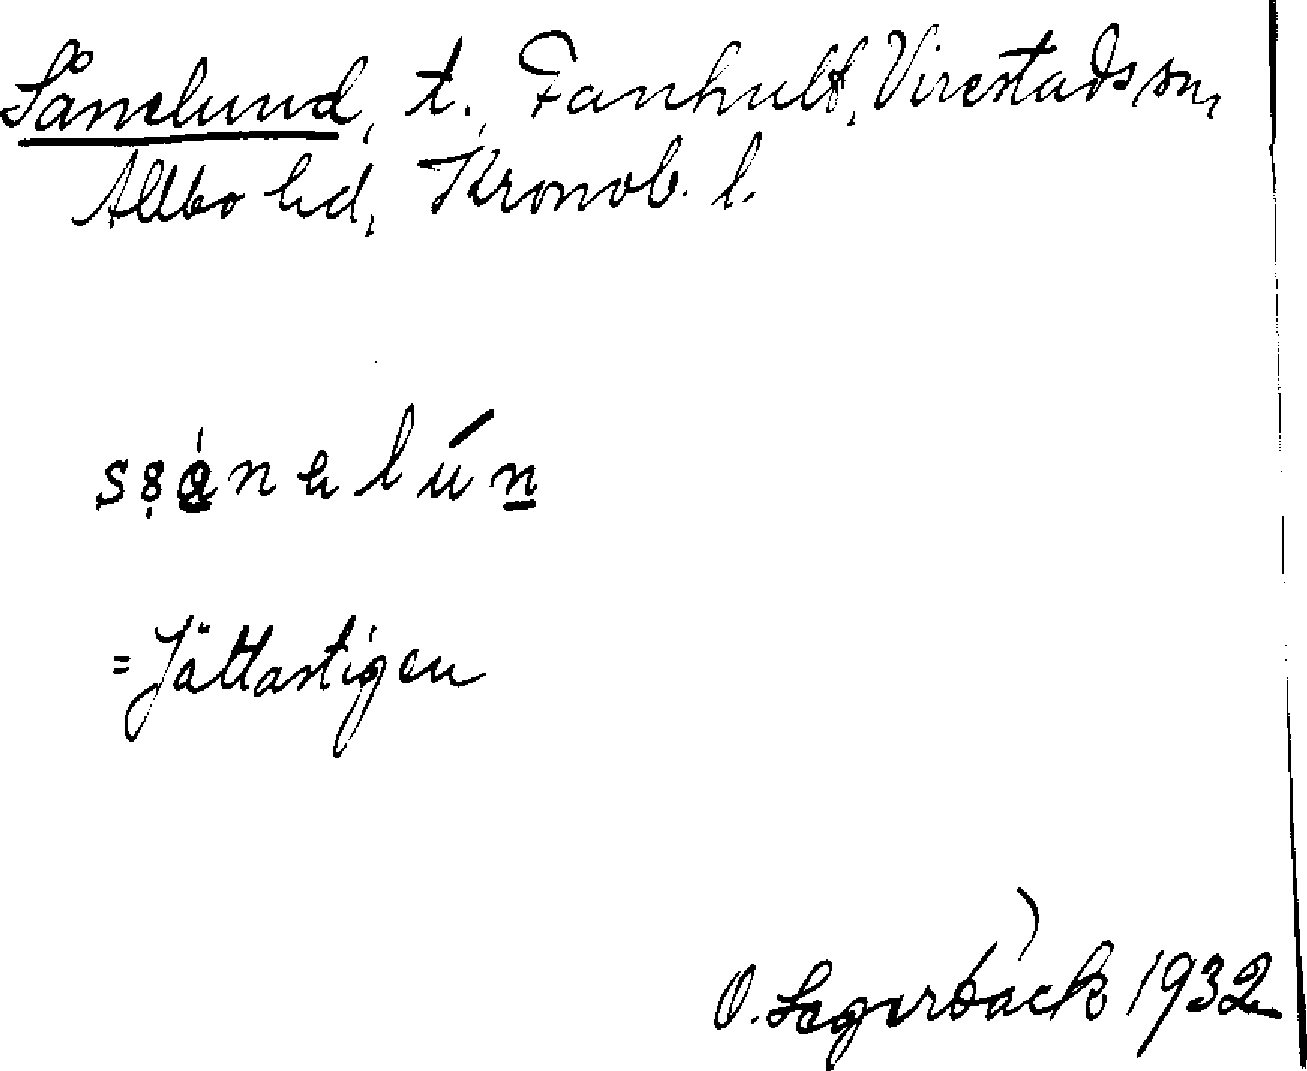 Sånelund, t. Fanhult, Virestads sn,
Allbo hd, Kronob. l.
= Jättastigen
O. Segerbäck 1932